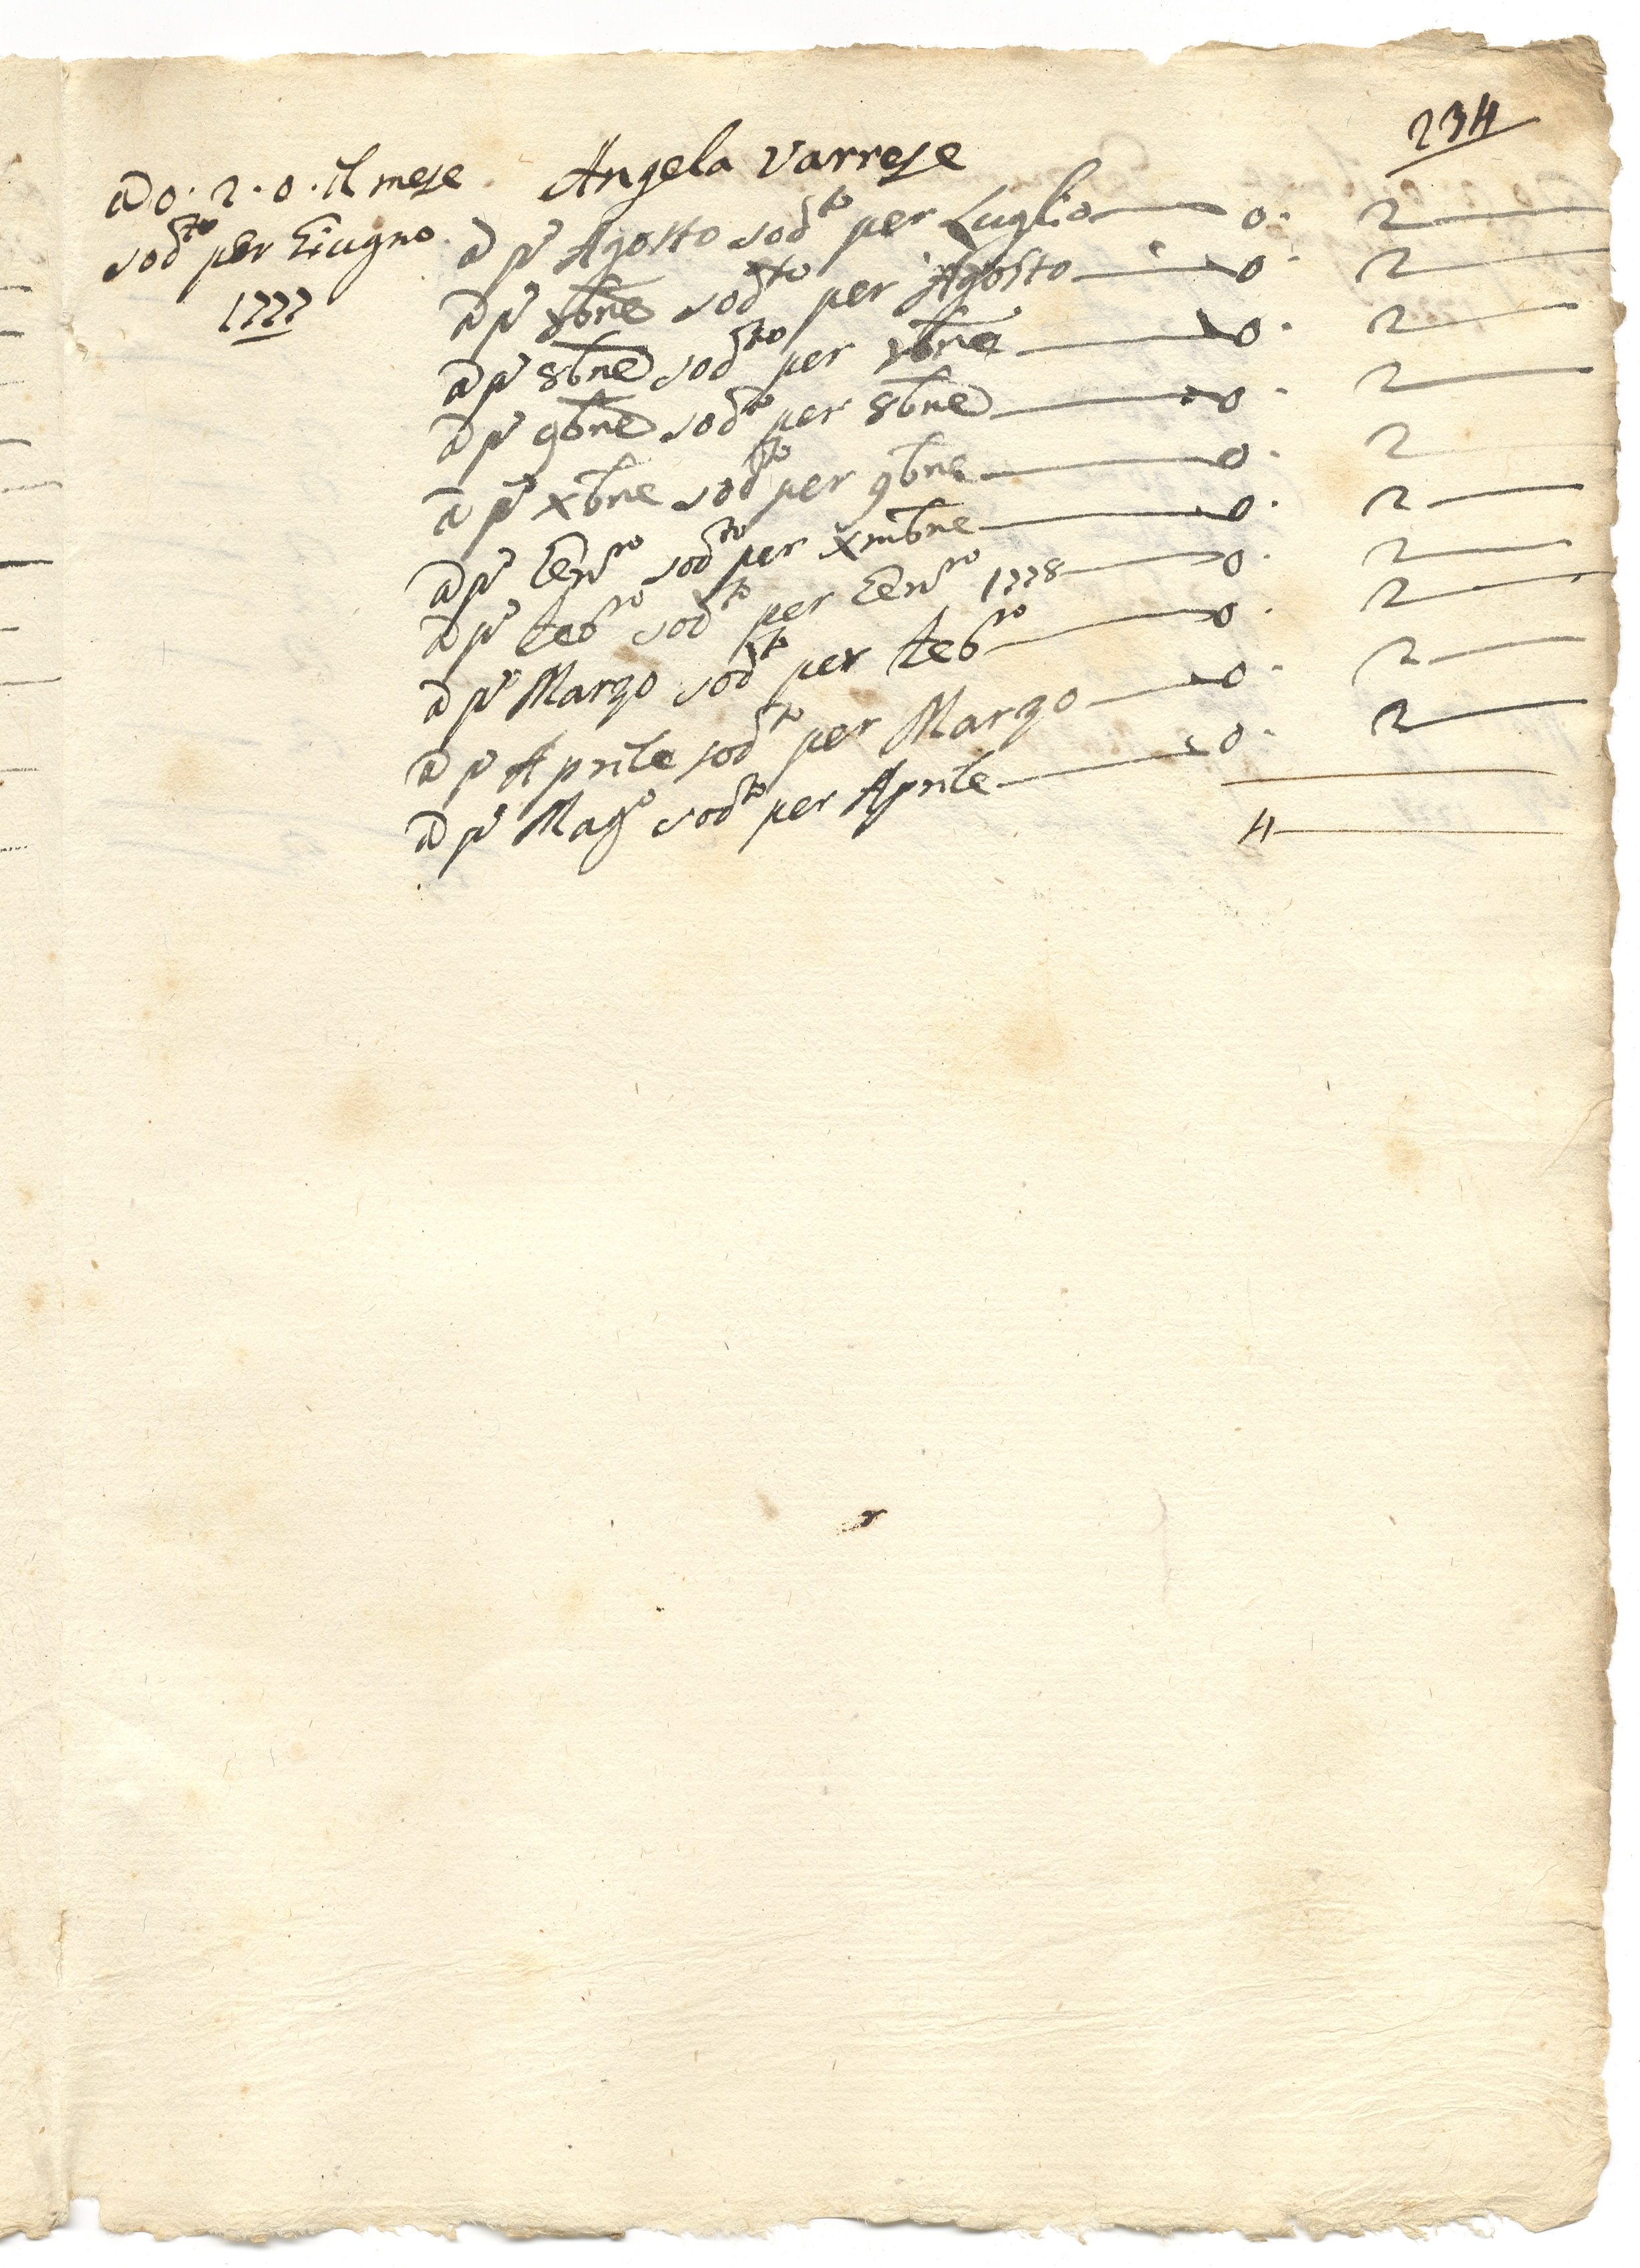 234
a 0. 2. 0. il mese
sodto per Giugno
1777
Angela Varrese
a pmo Agosto sodto per Luglio — 0. 2 —
a pmo 7bre sodto per Agosto — 0. 2 —
a pmo 8bre sodto per 7bre — 0. 2 —
a pmo 9bre sodto per 8bre — 0. 2 —
a pmo Xbre sodto per 9bre — 0. 2
a pmo Genro sodto per Xmbre — 0. 2 —
a pmo Febro sodto per Genro 1778 — 0. 2 —
a pmo Marzo sodto per Febro — 0. 2 —
a pmo Aprile sodto per Marzo — 0. 2 —
a pmo Mago sodto per Aprile — 0. 2 —
4 —